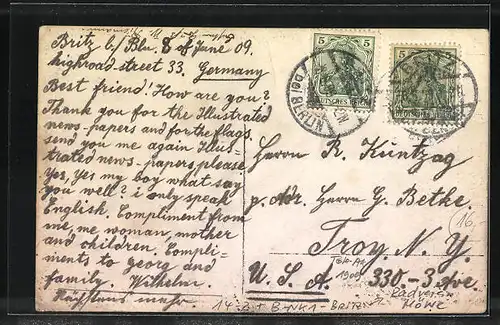 Britz b/Bln. 8 of June 09.
highroad-street 33. Germany
Best friend! How are you?
Thank you for the Illustrated
news-papers and for the flags.
send you me again Illus-
trated news-papers, please
Yes, Yes my boy what say
you well? i only speak
English. Compliment from
me, me woman, mother
and children. Compli-
ments to Georg and
family. Wilhelm.
Nächstens mehr.
5 5
DEUTSCHES REICH
BRITZ
Herrn R. Kuntzag
p. Adr. Herrn G. Bethe.
Troy. N. Y.
U. S. A. 330-3 Ave.
16.-
1909
Radverein
Möwe